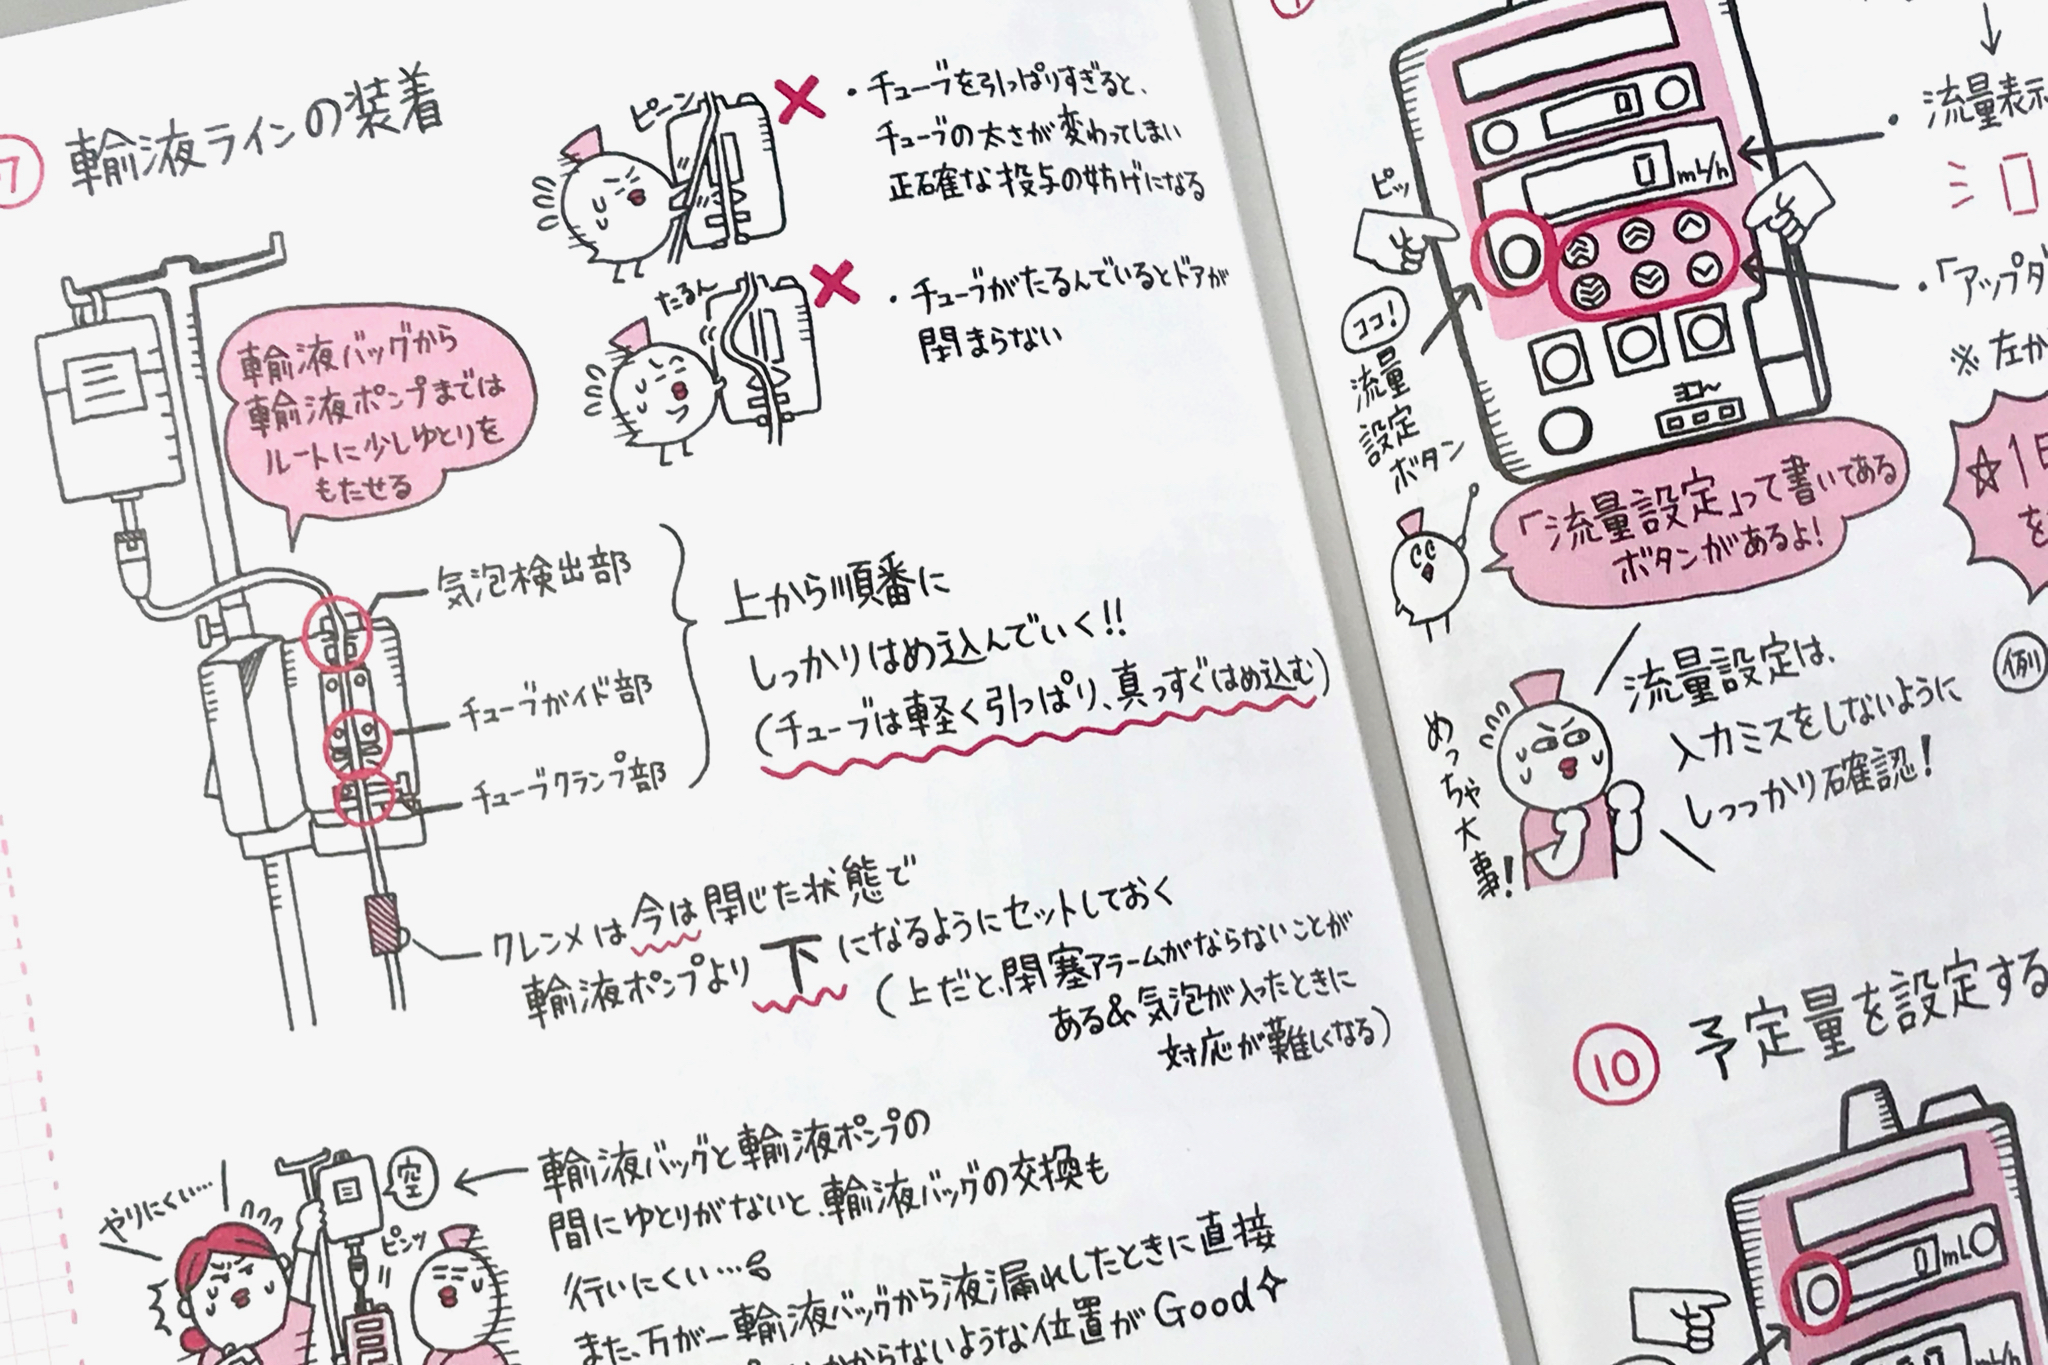 7 輸液ラインの装着
ピーン
・チューブを引っぱりすぎると、
チューブの太さが変わってしまい
正確な投与の妨げになる
たるん
・チューブがたるんでいるとドアが
閉まらない
輸液バッグから
輸液ポンプまでは
ルートに少しゆとりを
もたせる
気泡検出部
チューブガイド部
チューブクランプ部
上から順番に
しっかりはめ込んでいく!!
(チューブは軽く引っぱり、真っすぐはめ込む)
クレンメは今は閉じた状態で
輸液ポンプより下になるようにセットしておく
(上だと、閉塞アラームがならないことが
ある&気泡が入ったときに
対応が難しくなる)
やりにくい…
空
ピンッ
輸液バッグと輸液ポンプの
間にゆとりがないと、輸液バッグの交換も
行いにくい…
また、万が一輸液バッグから液漏れしたときに直接
かからないような位置がGood
0
0 mL/h
ピッ
ココ!
流量
設定
ボタン
・流量表示
0
・「アップダ
※左か
「流量設定」って書いてある
ボタンがあるよ!
☆1日
を
めっちゃ大事!
流量設定は、
入力ミスをしないように
しっっかり確認!
例
10 予定量を設定する
0 mL
0 mL/h